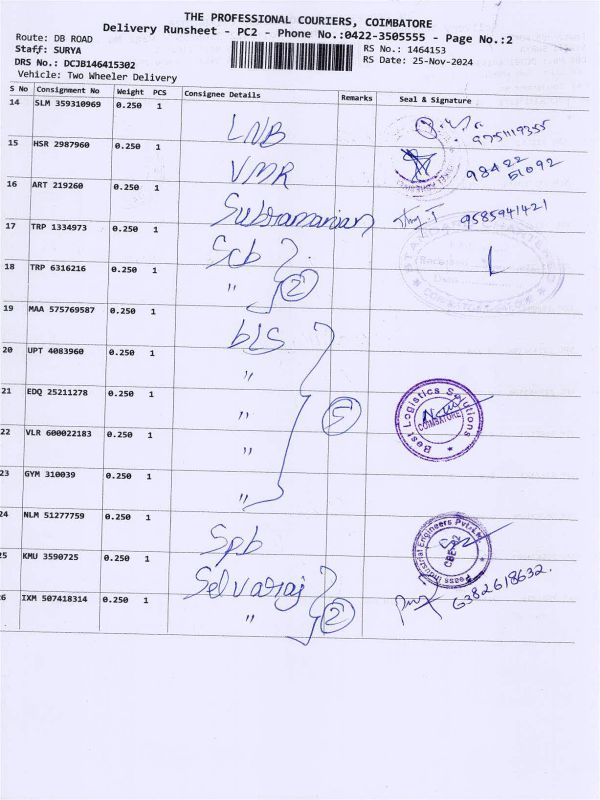 THE PROFESSIONAL COURIERS, COIMBATORE
Delivery Runsheet - PC2 - Phone No.:0422-3505555 - Page No.:2
Route: DB ROAD
RS No.: 1464153
Staff: SURYA
RS Date: 25-Nov-2024
DRS No.: DCJB146415302
Vehicle: Two Wheeler Delivery
S No Consignment No Weight PCS Consignee Details Remarks Seal & Signature
14 SLM 359310969 0.250 1 LNB 9751119355
15 HSR 2987960 0.250 1 VMR 98422 51092
16 ART 219260 0.250 1 Subramanian 9585941421
17 TRP 1334973 0.250 1 Scb
18 TRP 6316216 0.250 1 " 2
19 MAA 575769587 0.250 1 bLS
20 UPT 4083960 0.250 1 "
21 EDQ 25211278 0.250 1 " 5 Best Logistics Solutions COIMBATORE
22 VLR 600022183 0.250 1 "
23 GYM 310039 0.250 1 "
24 NLM 51277759 0.250 1 Spb Industrial Engineers Pvt. Ltd.
25 KMU 3590725 0.250 1 Selvaraj 6382618632.
26 IXM 507418314 0.250 1 " 2